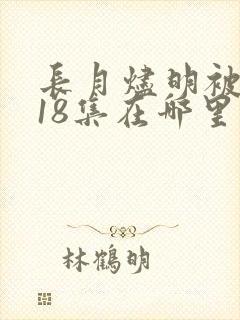 長月燼明被
18集在哪里
林鶴明